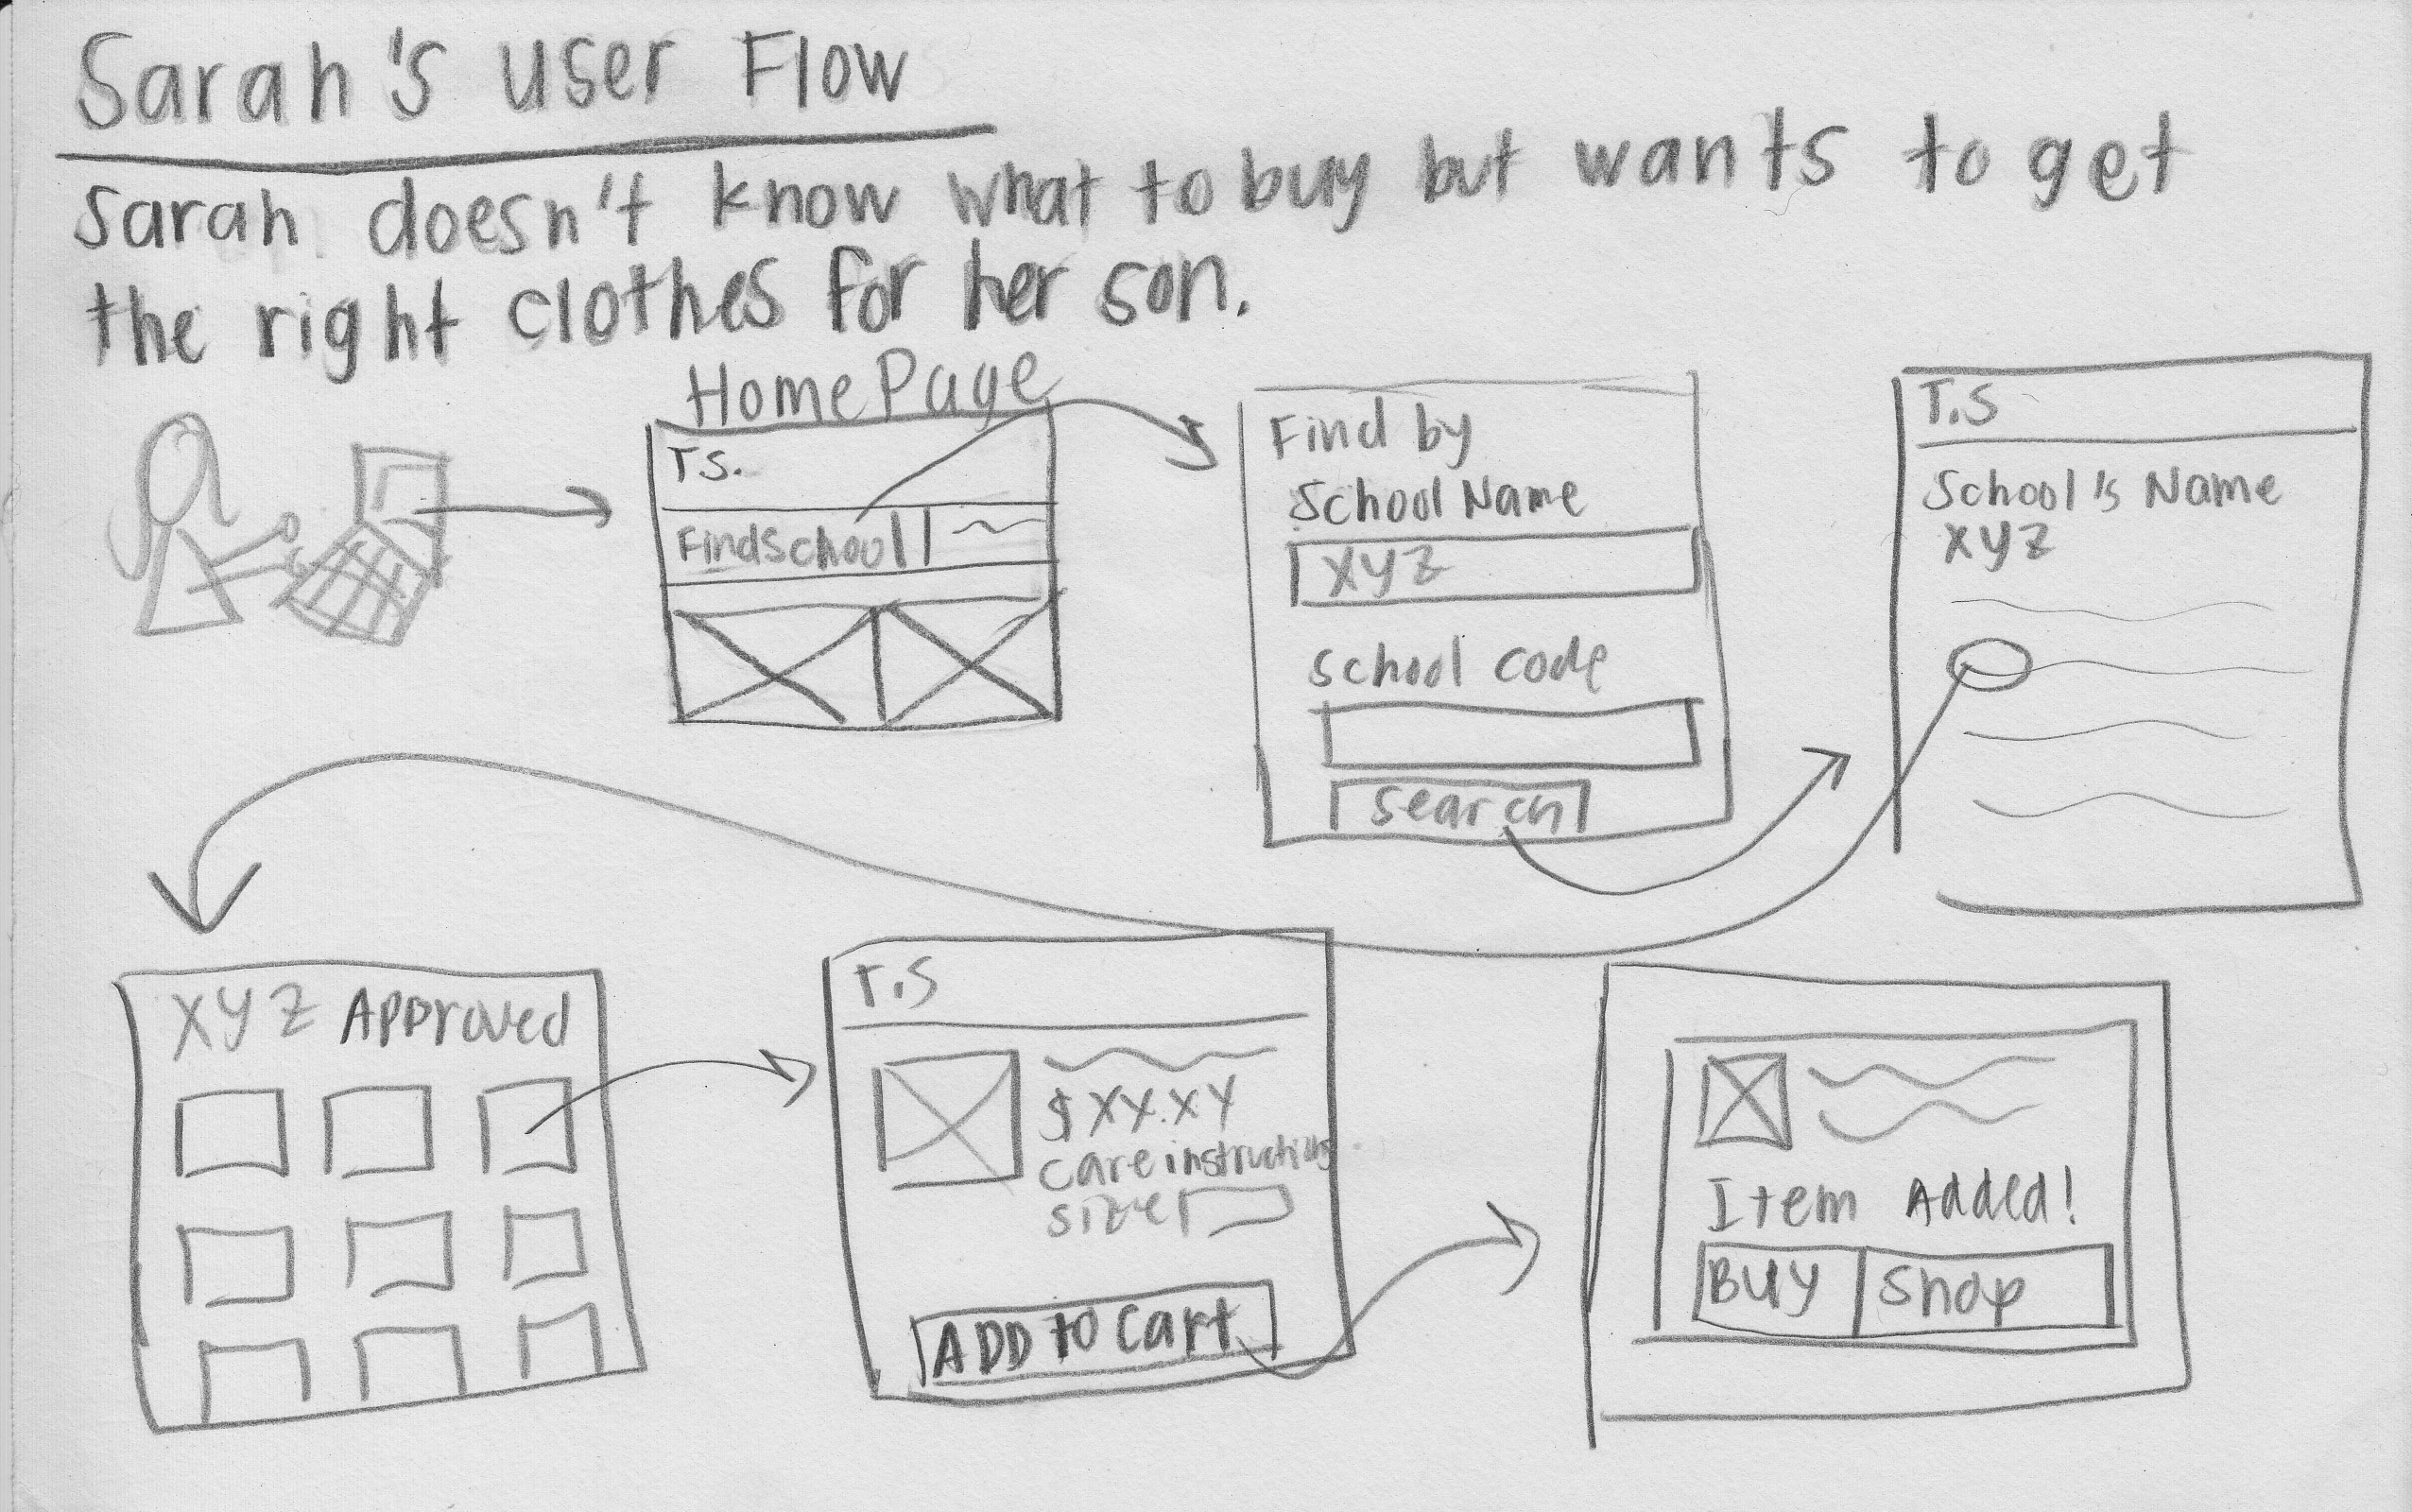 Sarah's User Flow
Sarah doesn't know what to buy but wants to get
the right clothes for her son.
Home Page
T.S.
Find School
Find by
School Name
XYZ
School code
Search
T.S
School's Name
XYZ
XYZ Approved
T.S
$XX.XX
care instructions
size
ADD to Cart
Item Added!
Buy
Shop